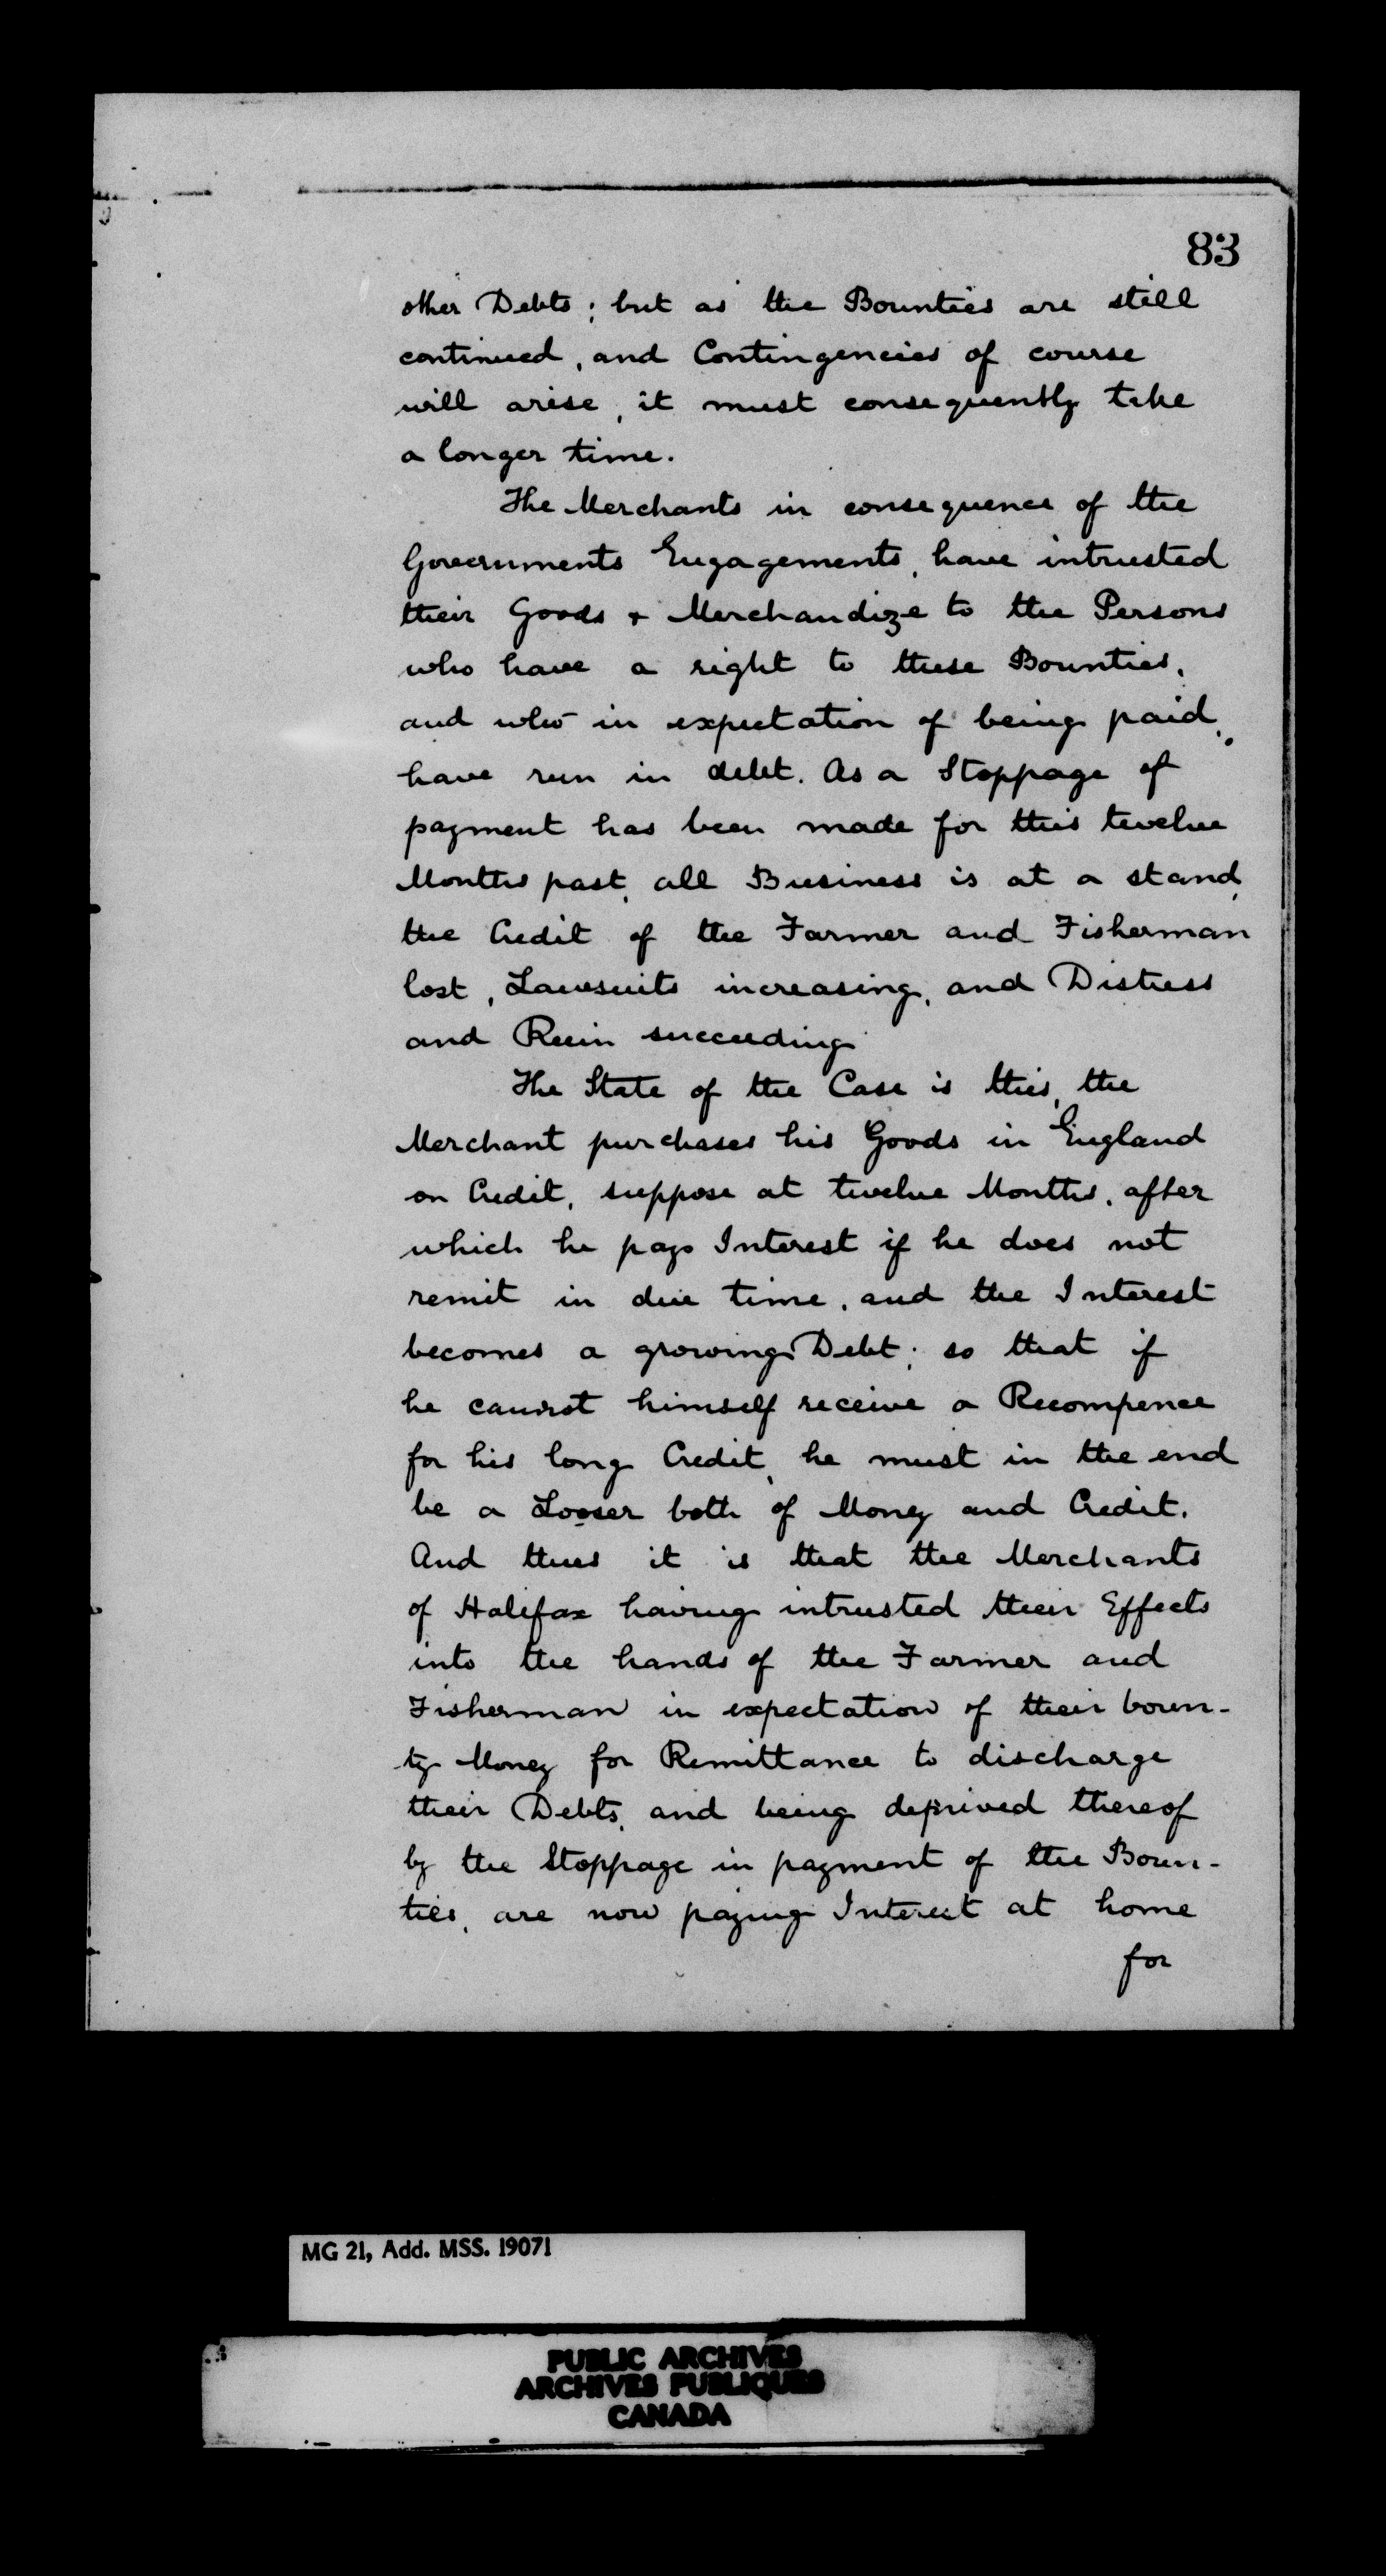 83
other Debts; but as the Bounties are still
continued, and Contingencies of course
will arise, it must consequently take
a longer time.
The Merchants in consequence of the
Governments Engagements, have intrusted
their Goods & Merchandize to the Persons
who have a right to these Bounties,
and who in expectation of being paid,
have run in debt. As a Stoppage of
payment has been made for this twelve
Months past, all Business is at a stand,
the Credit of the Farmer and Fisherman
lost, Lawsuits increasing, and Distress
and Ruin succeeding
The State of the Case is this, the
Merchant purchases his Goods in England
on Credit, suppose at twelve Months, after
which he pays Interest if he does not
remit in due time, and the Interest
becomes a growing Debt; so that if
he cannot himself receive a Recompence
for his long Credit, he must in the end
be a Looser both of Money and Credit.
And thus it is that the Merchants
of Halifax having intrusted their Effects
into the hands of the Farmer and
Fisherman in expectation of their boun-
ty Money for Remittance to discharge
their Debts, and being deprived thereof
by the Stoppage in payment of the Boun-
ties, are now paying Interest at home
for
MG 21, Add. MSS. 19071
PUBLIC ARCHIVES
ARCHIVES PUBLIQUES
CANADA